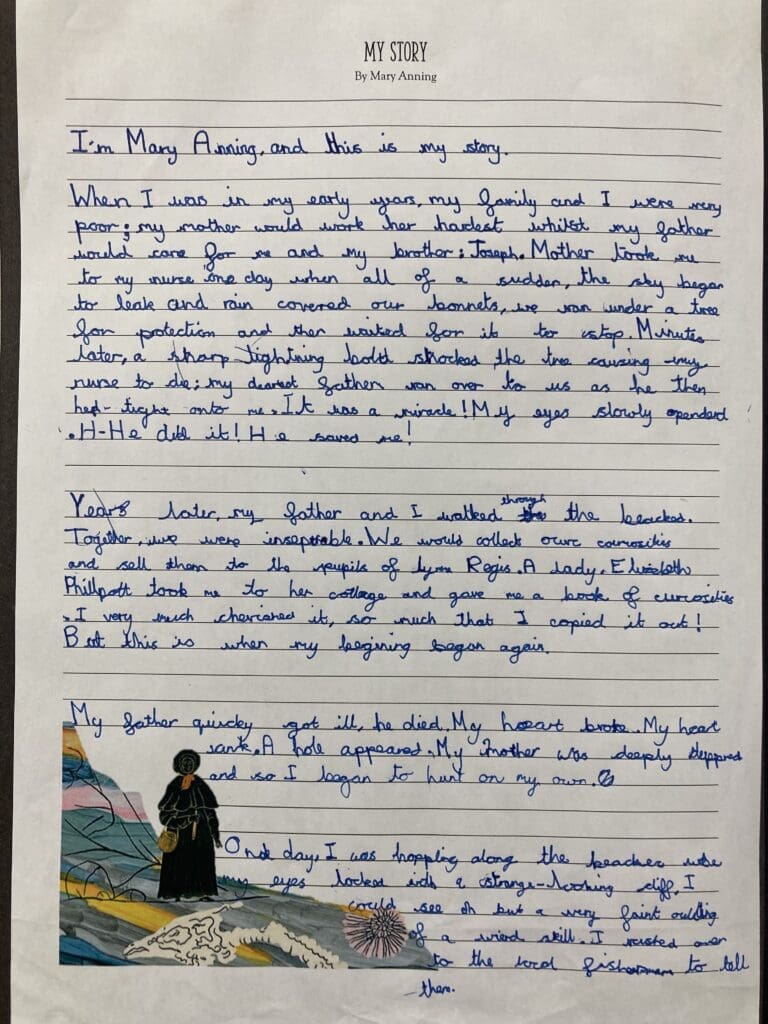 MY STORY
By Mary Anning
I'm Mary Anning, and this is my story.
When I was in my early years, my family and I were very
poor; my mother would work her hardest whilst my father
would care for me and my brother; Joseph. Mother took me
to my nurse one day when all of a sudden, the sky began
to leak and rain covered our bonnets, we ran under a tree
for protection and then waited for it to stop. Minutes
later, a sharp lightning bold shocked the tree causing my
nurse to die; my dearest father ran over to us as he then
held tight onto me. It was a miracle! My eyes slowly
. H-He did it! He saved me!
Years later, my father and I walked through the beaches.
Together, we were inseperable. We would collect our curiositis
and sell them to the pupils of Lyme Regis. A lady, Elizabeth
Phillpott took me to her cottage and gave me a book of curiosities
. I very much cherished it, so much that I copied it out!
But this is when my begining began again.
My father quicky got ill, he died. My heart broke. My heart
sank. A hole appeared. My mother was deeply
and so I began to hunt on my own.
One day, I was hopping along the beaches
my eyes locked with a strange-looking cliff. I
could see but a very faint
of a skill. I rusted over
to the local fisherman to tell
them.